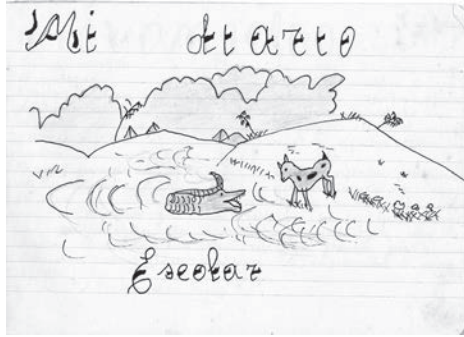 Mi diario
Escolar